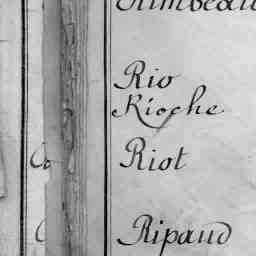 Rio
Rioche
Riot
Ripaud